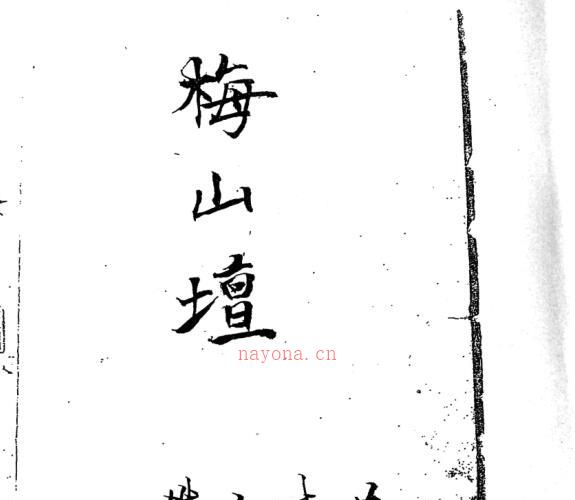 梅山壇
nayona.cn